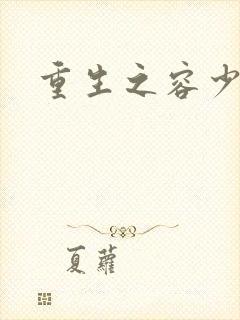 重生之容少
夏蘿